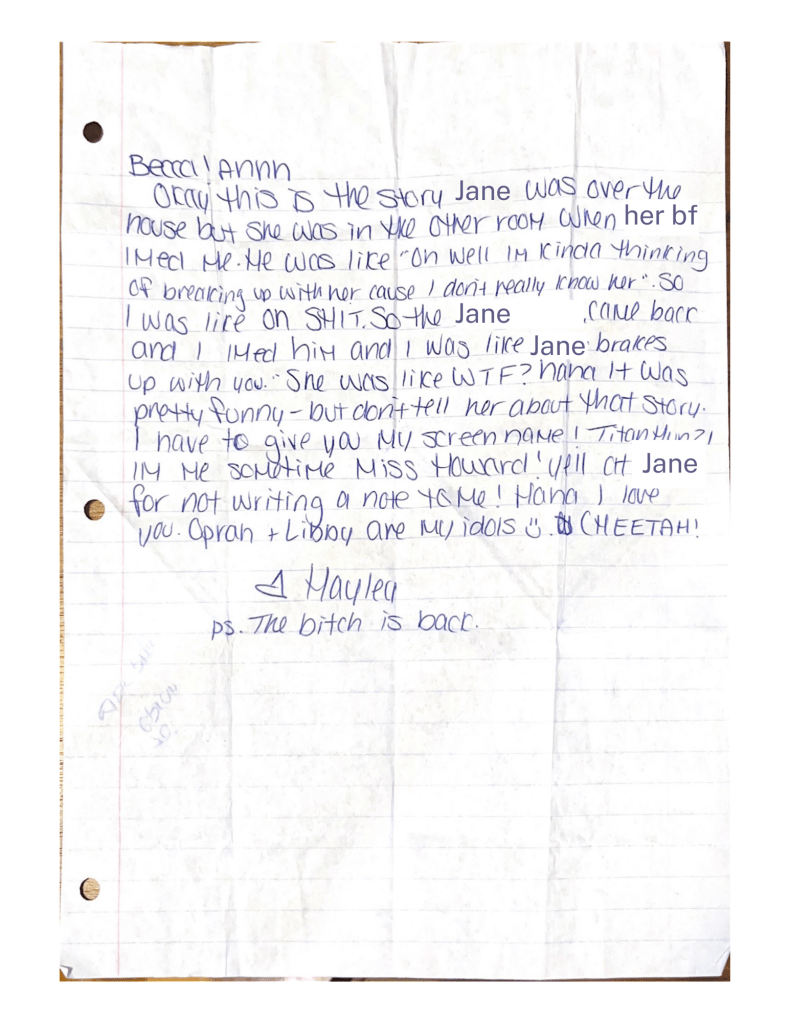 Becca! Annn
Okay this is the story Jane was over the
house but she was in the other room when her bf
IMed me. He was like "oh well Im kinda thinking
of breaking up with her cause I don't really know her". So
I was like oh SHIT. So the Jane came back
and I IMed him and I was like Jane brakes
up with you." She was like WTF? haha It was
pretty funny - but don't tell her about that story.
I have to give you my screen name!
IM me sometime Miss Howard! Yell at Jane
for not writing a note to me! Haha I love
you. Oprah + Libby are my idols :). CHEETAH!
♡ Hayley
ps. The bitch is back.